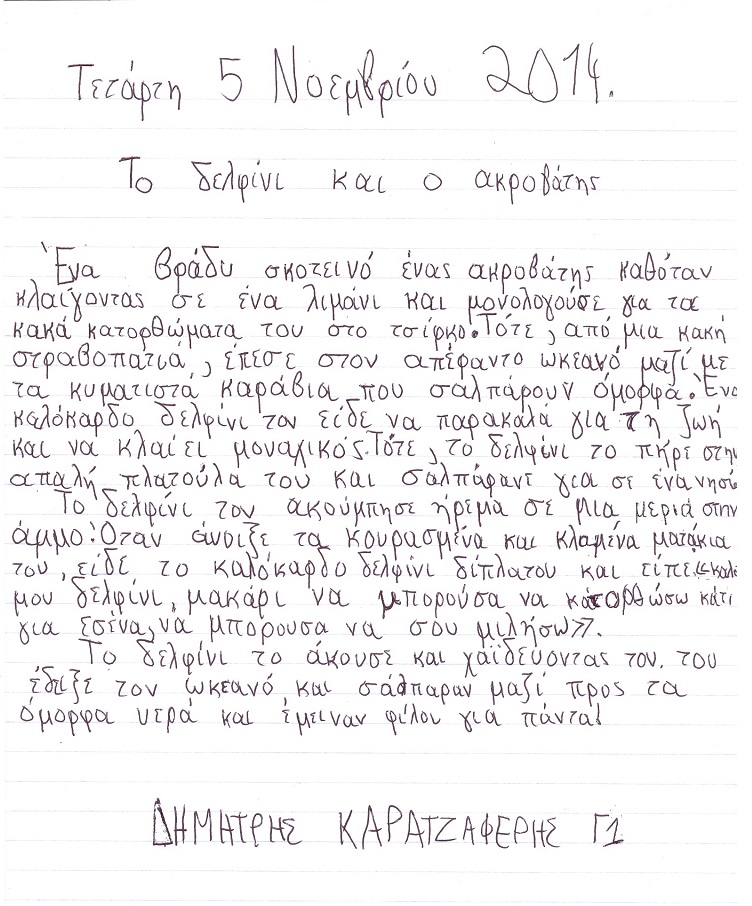 Τετάρτη 5 Νοεμβρίου 2014.
Το δελφίνι και ο ακροβάτης
Ένα βράδυ σκοτεινό ένας ακροβάτης καθόταν
κλαίγοντας σε ένα λιμάνι και μονολογούσε για τα
κακά κατορθώματα του στο τσίρκο. Τότε, από μια κακή
στραβοπατιά, έπεσε στον απέραντο ωκεανό μαζί με
τα κυματιστά καράβια που σαλπάρουν όμορφα. Ένα
καλόκαρδο δελφίνι τον είδε να παρακαλά για τη ζωή
και να κλαίει μοναχικός. Τότε, το δελφίνι το πήρε στην
απαλή πλατούλα του και σαλπάρανε για σε ένα νησί.
Το δελφίνι τον ακούμπησε ήρεμα σε μια μεριά στην
άμμο. Όταν άνοιξε τα κουρασμένα και κλαμένα ματάκια
του, είδε το καλόκαρδο δελφίνι δίπλα του και είπε. «καλό
μου δελφίνι, μακάρι να μπορούσα να κατορθώσω κάτι
για εσένα, να μπορουσα να σου μιλήσω».
Το δελφίνι το άκουσε και χαϊδεύοντας τον, του
έδειξε τον ωκεανό και σάλπαραν μαζί προς τα
όμορφα νερά και έμειναν φίλοι για πάντα!
ΔΗΜΗΤΡΗΣ ΚΑΡΑΤΖΑΦΕΡΗΣ Γ1